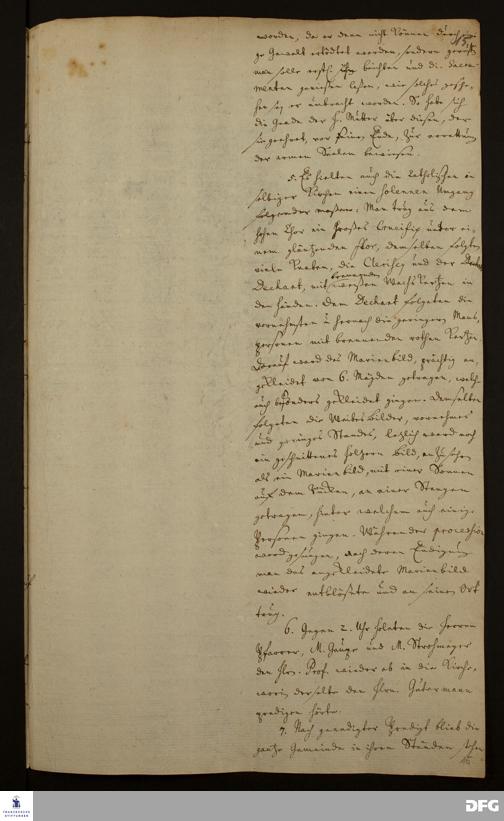 worden, da er denn nicht können durch
ge Gewalt ertödtet werden, sondern
man solle erstl. ihn beichten und die Sacra-
menten genießen laßen, wie solches gesche-
hen sey er umbracht worden. So habe sich
die Gnade der H. Mutter über diesen, der
sie geehret, vor seinem Ende, zur errettung
der armen Seelen bewiesen.
5. Es hielten auch die Catholischen in
selbiger Kirchen einen solennen Umgang
folgender maßen: Man trug aus dem
hohen Chor ein großes Crucifix unter ei-
nem glänzenden flor, demselben folgten
viele Knaben, die Clerisey und der
Dechant, mit brennenden weißen Wachs Kertzen in
den Händen. Dem Dechant folgeten die
vornehmsten u hernach die geringern Manns
personen mit brennenden rothen Kertzen.
Darauf ward das Marienbild, prächtig an-
gekleidet von 6. Mägden getragen, welche
auch besonders gekleidet gingen. Demselben
folgeten die Weibesbilder, vornehmes
und geringes Standes, letzlich ward noch
ein geschnittenes höltzern bild, anzusehen
als ein Marienbild, mit einer Sonnen
auf dem Rücken, an einer Stangen
getragen, hinter welchem auch einige
Personen gingen. Während der procession
ward gesungen, nach deren Endigung
man das angekleidete Marienbild
wieder entblößete und an seinen Ort
trug.
6. Gegen 2. Uhr holeten die Herren
Pfarrer, M. Gaupp und M. Strohmayer
den Hrn. Prof. wieder ab in die Kirche,
worin derselbe den Hrn. Gutermann
predigen hörte.
7. Nach geendigter Predigt blieb die
gantze Gemeinde in ihren Ständen stehen
FRANCKESCHE
STIFTUNGEN
DFG